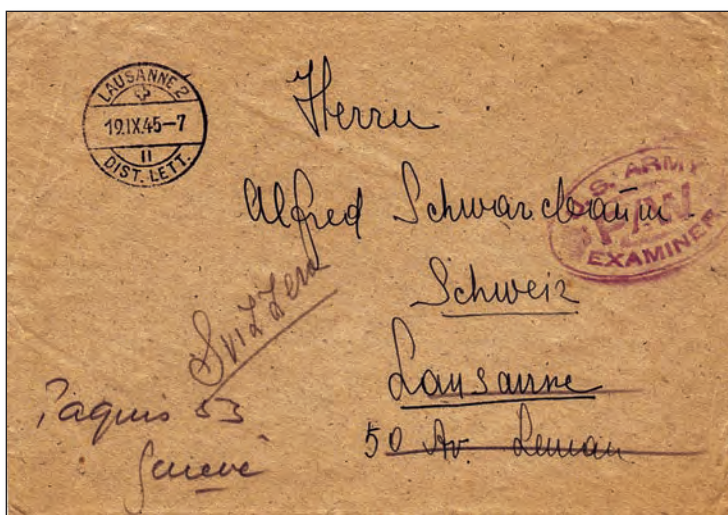 LAUSANNE 2
19.IX.45–7
11
DIST. LETT.
Herrn
Alfred Schwarzbaum
U.S. ARMY
P/W
EXAMINER
Schweiz
Svizzera
Lausanne
50 Av. Leman
Paquis 53
Genevè